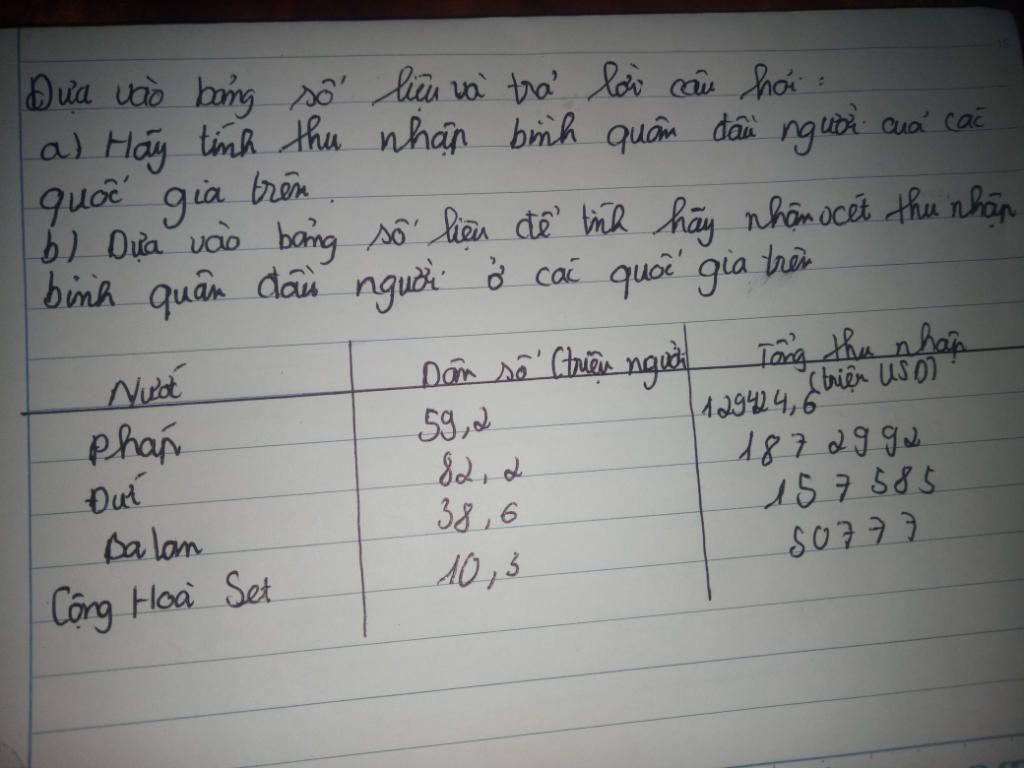 Dựa vào bảng số liệu và trả lời câu hỏi:
a) Hãy tính thu nhập bình quân đầu người của các
quốc gia trên.
b) Dựa vào bảng số liệu để tính hãy nhận xét thu nhập
bình quân đầu người ở các quốc gia trên
Nước Dân số (triệu người Tổng thu nhập
(triệu USD)
Pháp 59,2 129424,6
Đức 82,2 1872992
Ba lan 38,6 157585
Cộng Hoà Set 10,3 50777